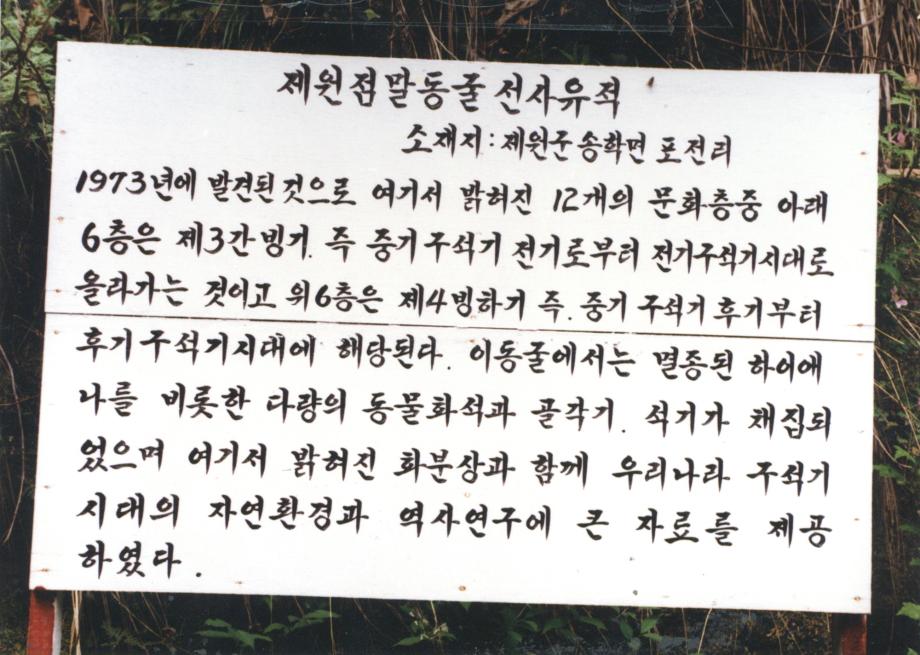 제원점말동굴 선사유적
소재지: 제원군 송학면 포전리
1973년에 발견된 것으로 여기서 밝혀진 12개의 문화층중 아래
6층은 제3간빙기. 즉 중기구석기 전기로부터 전기구석기시대로
올라가는 것이고 위6층은 제4빙하기 즉. 중기 구석기 후기부터
후기구석기시대에 해당된다. 이동굴에서는 멸종된 하이에
나를 비롯한 다량의 동물화석과 골각기. 석기가 채집되
었으며 여기서 밝혀진 화분상과 함께 우리나라 구석기
시대의 자연환경과 역사연구에 큰 자료를 제공
하였다.